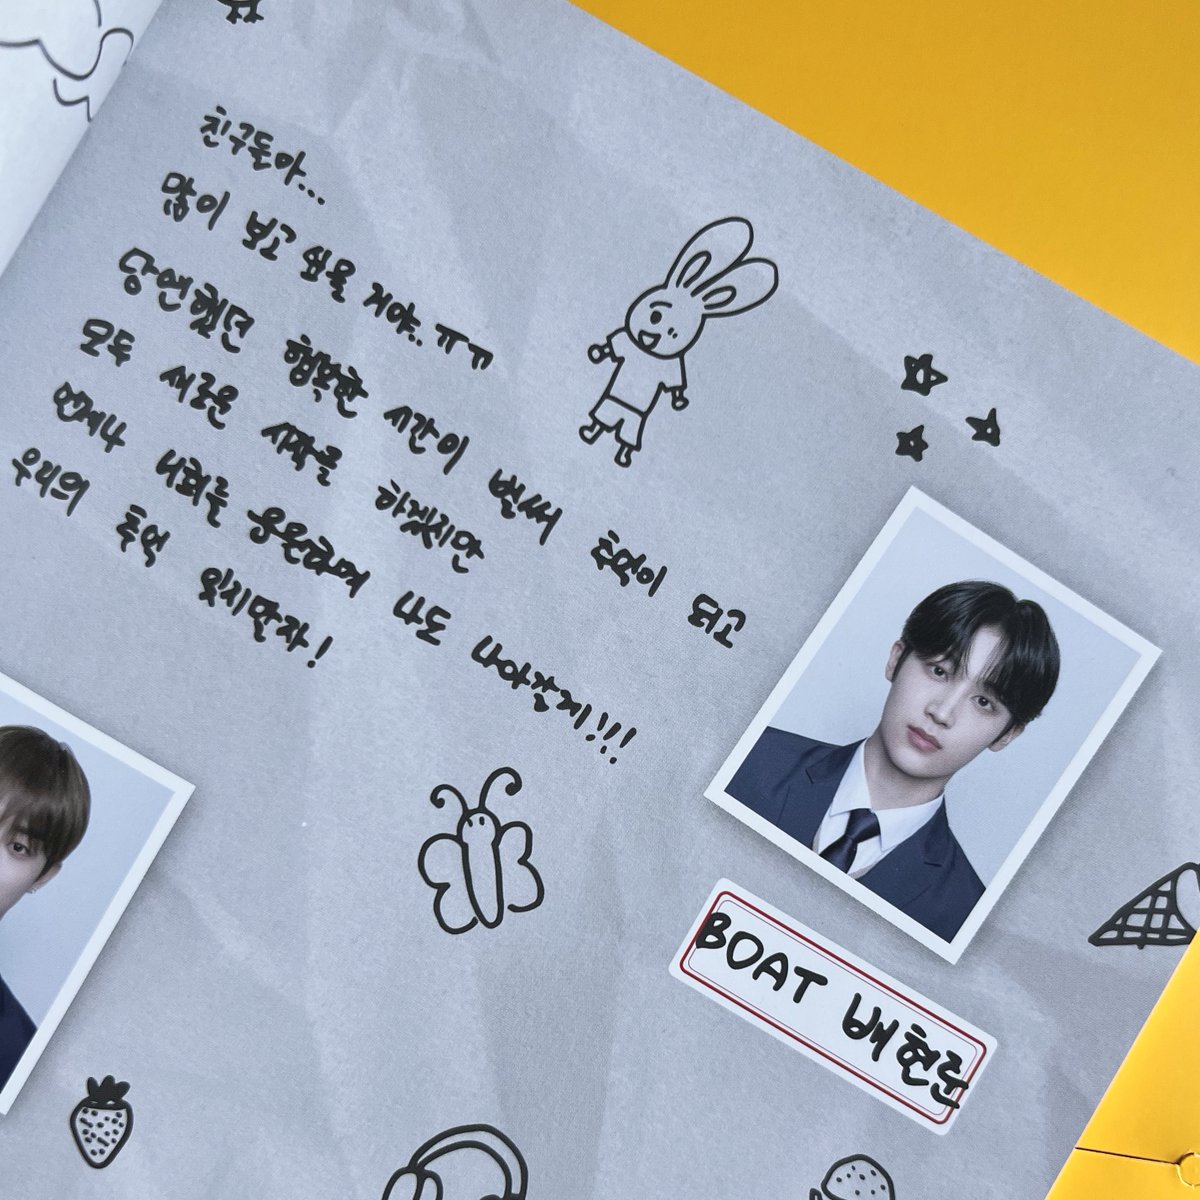 친구들아...
많이 보고 싶을 거야..ㅠㅠ
당연했던 행복한 시간이 벌써 추억이 되고
모두 새로운 시작을 하겠지만
언제나 너희를 응원하며 나도 나아갈게!!!
우리의 추억 잊지만자!
BOAT 배현준